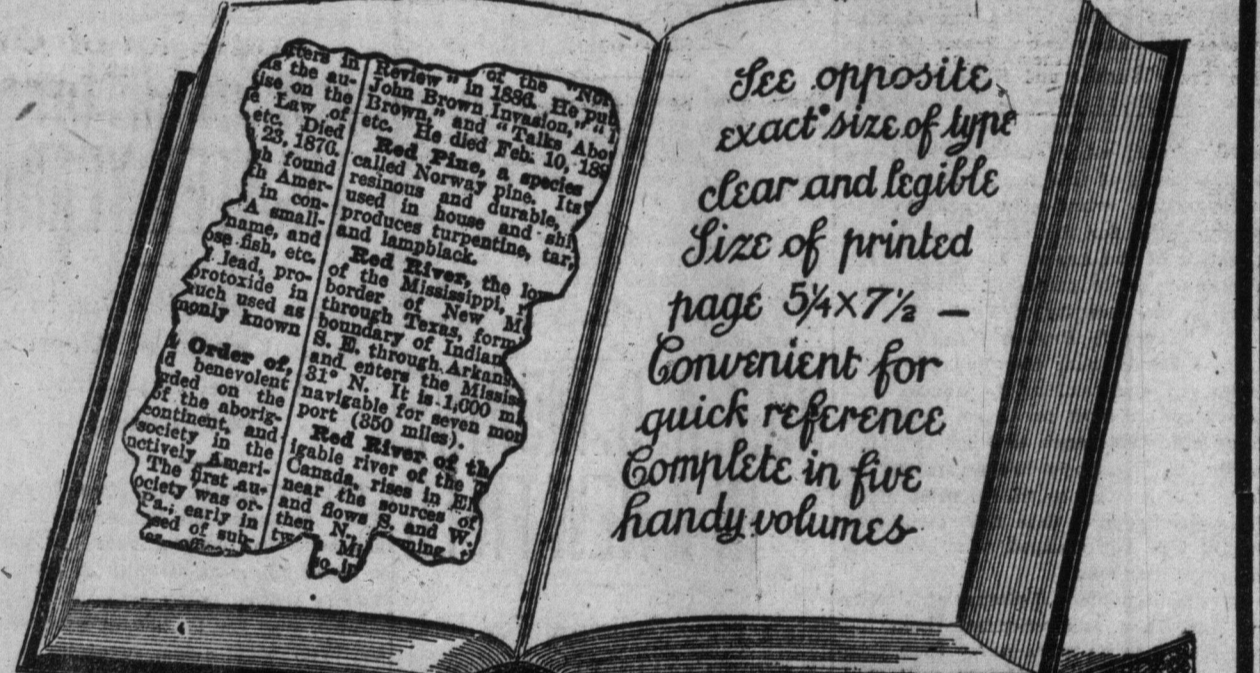 in
is the au-
ise on the
Law of
etc. Died
23, 1876.
found
Amer-
in con-
A small-
name, and
fish, etc.
lead, pro-
protoxide in
used as
known
Order of,
benevolent
on the
of the aborig-
continent, and
society in the
Ameri-
The first au-
was or-
Pa., early in
of sub-
Review" of the
in 1886. He
John Brown Invasion,"
Brown," and "Talks
etc. He died Feb. 10,
Red Pine, a species
called Norway pine. Its
resinous and durable,
used in house and
produces turpentine, tar,
and lampblack.
Red River, the
of the Mississippi,
border of New
through Texas,
boundary of
S. E. through
and enters the
31° N. It is 1,600
navigable for seven
port (350 miles).
Red River of
igable river of the
Canada, rises in
near the sources of
and flows S. and W.
then N.,
See opposite
exact size of type
clear and legible
Size of printed
page 5¼×7½ —
Convenient for
quick reference
Complete in five
handy volumes